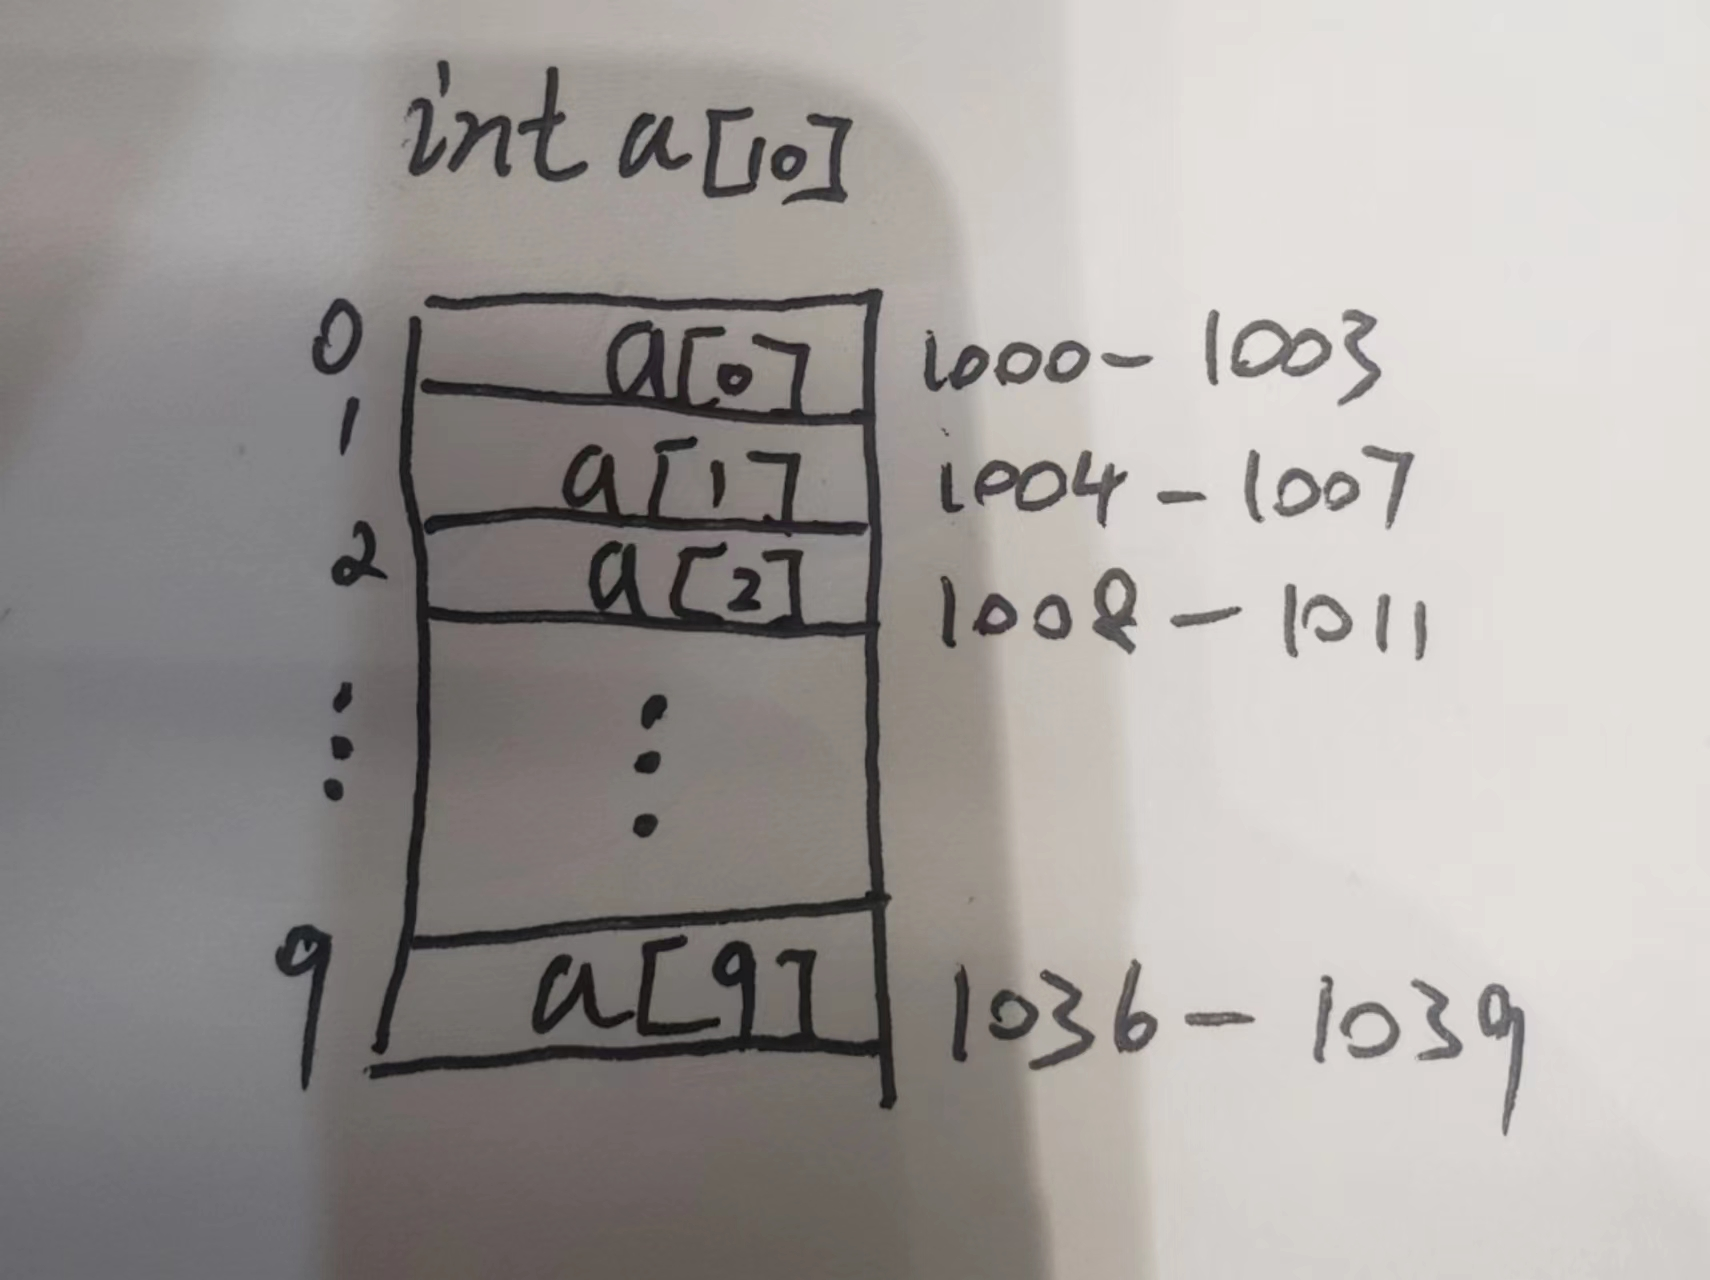 int a[10]
0 a[0] 1000-1003
1 a[1] 1004-1007
2 a[2] 1008-1011
⋮ ⋮
9 a[9] 1036-1039